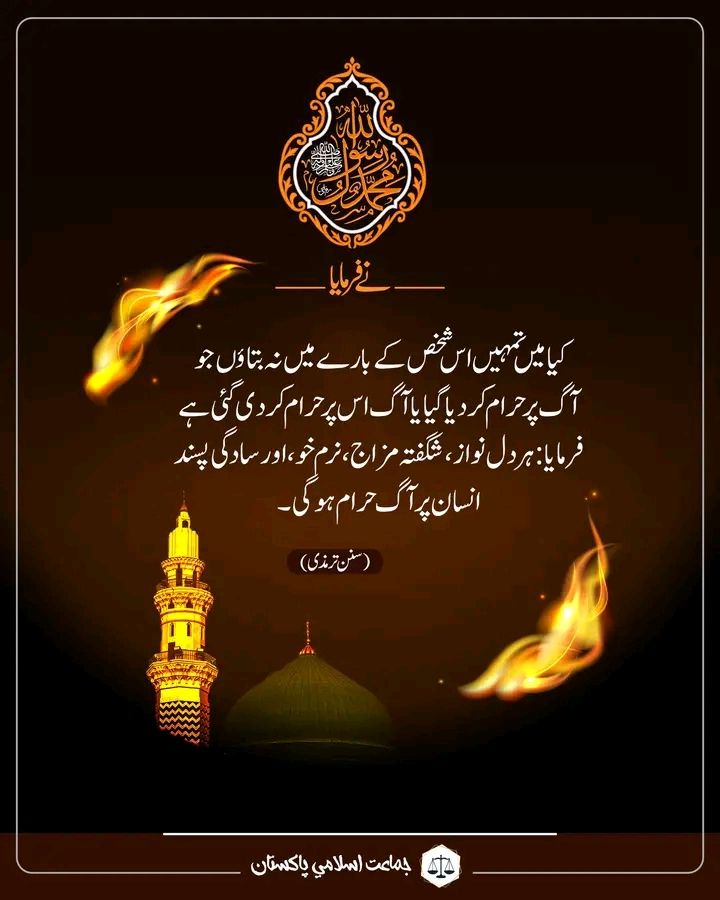 محمد رسول الله
نے فرمایا
کیا میں تمہیں اس شخص کے بارے میں نہ بتاؤں جو
آگ پر حرام کر دیا گیا یا آگ اس پر حرام کر دی گئی ہے
فرمایا: ہر دل نواز، شگفتہ مزاج، نرم خو، اور سادگی پسند
انسان پر آگ حرام ہوگی۔
(سنن ترمذی)
جماعت اسلامي پاکستان